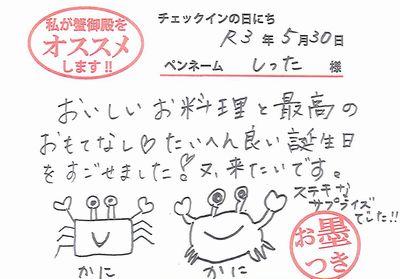 私が蟹御殿を
オススメ
します!!
チェックインの日にち
R3年5月30日
ペンネーム しった 様
おいしいお料理と最高の
おもてなし♡たいへん良い誕生日
をすごせました!又、来たいです。
ステキな
サプライズ
でした!!
かに
かに
お墨
つき